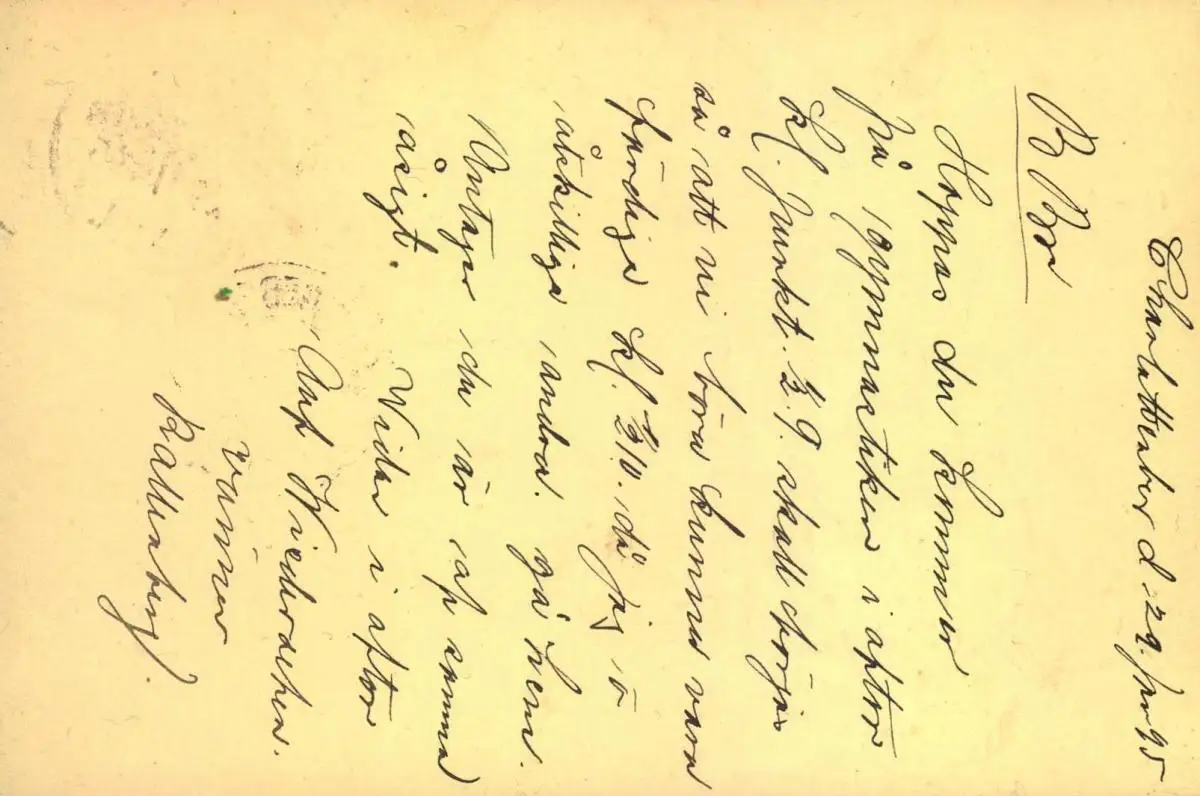 Charlottenber d. 29./10 95
B Bror
Hoppas du kommer
på gymnastiken i afton
kl. punkt. ½ 9. skall börja
så att vi böra kunna vara
färdiga kl. ½10. då jag o
åtskilliga andra gå hem.
Antager du är af samma
åsigt. Vidare i afton
Auf Wiedersehen.
vännen
Kallenberg.